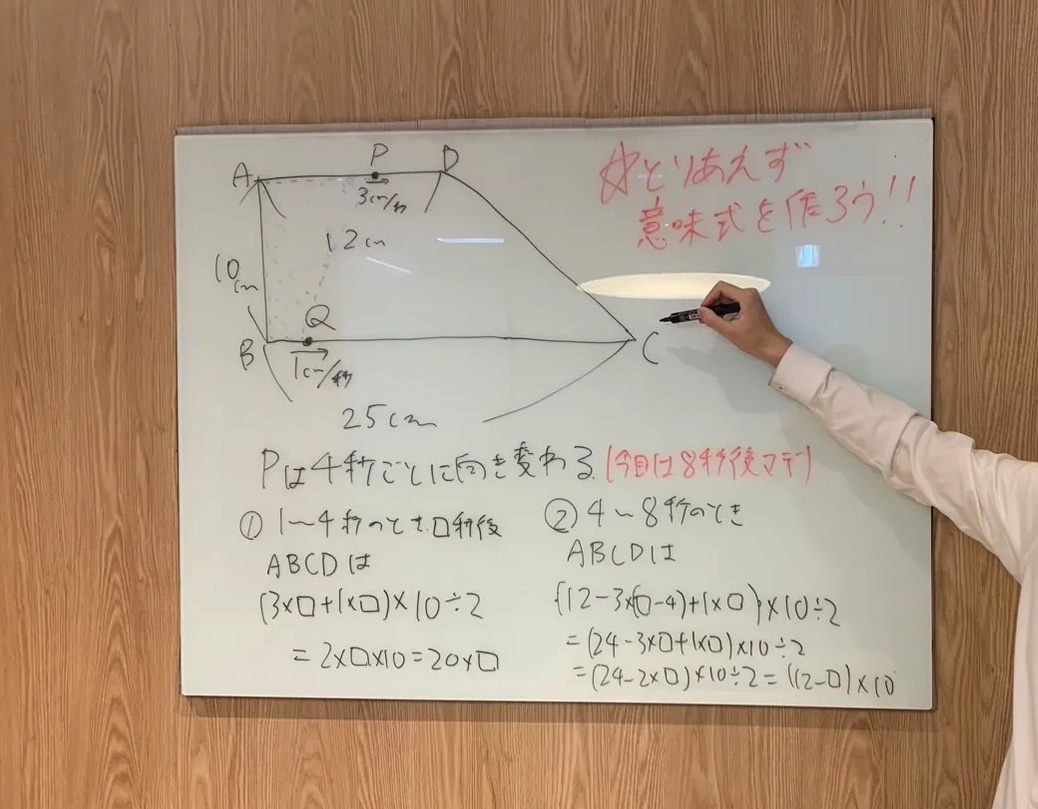 A P D
3cm/秒
12cm
10cm
Q
B C
1cm/秒
25cm
☆とりあえず
意味式を作ろう!!
Pは4秒ごとに向き変わる(今日は8秒後マデ)
① 1~4秒のとき.□秒後
ABCDは
(3×□+1×□)×10÷2
=2×□×10=20×□
② 4~8秒のとき
ABCDは
{12-3×(□-4)+1×□}×10÷2
=(24-3×□+1×□)×10÷2
=(24-2×□)×10÷2=(12-□)×10